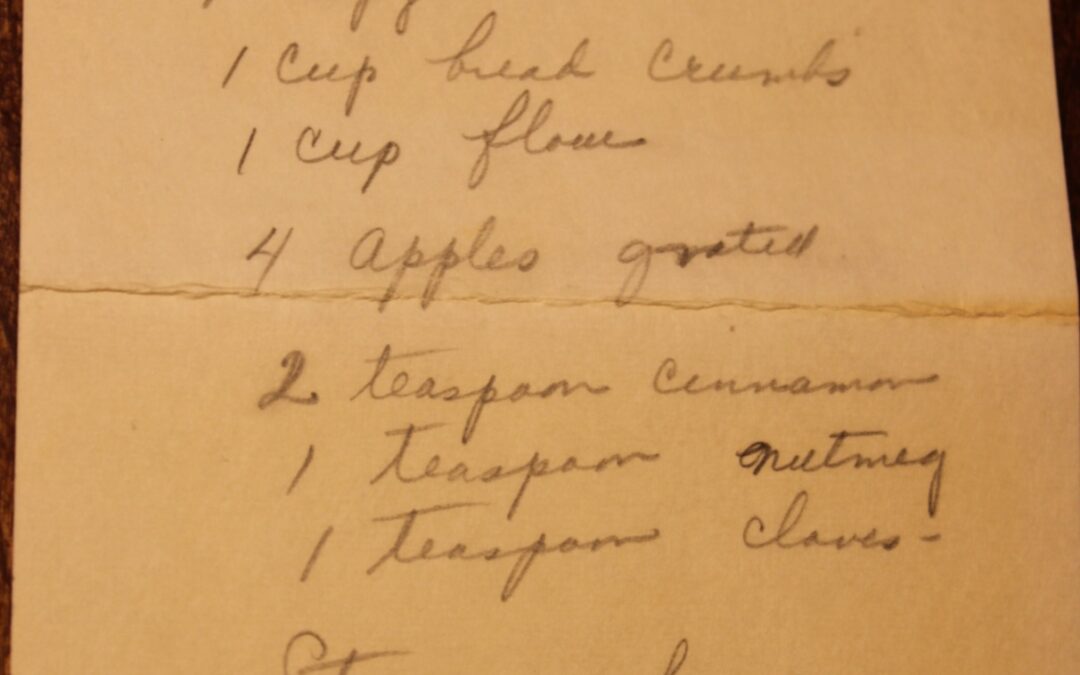 1 cup bread crumbs
1 cup flour
4 apples grated
2 teaspoon cinnamon
1 teaspoon nutmeg
1 teaspoon cloves-